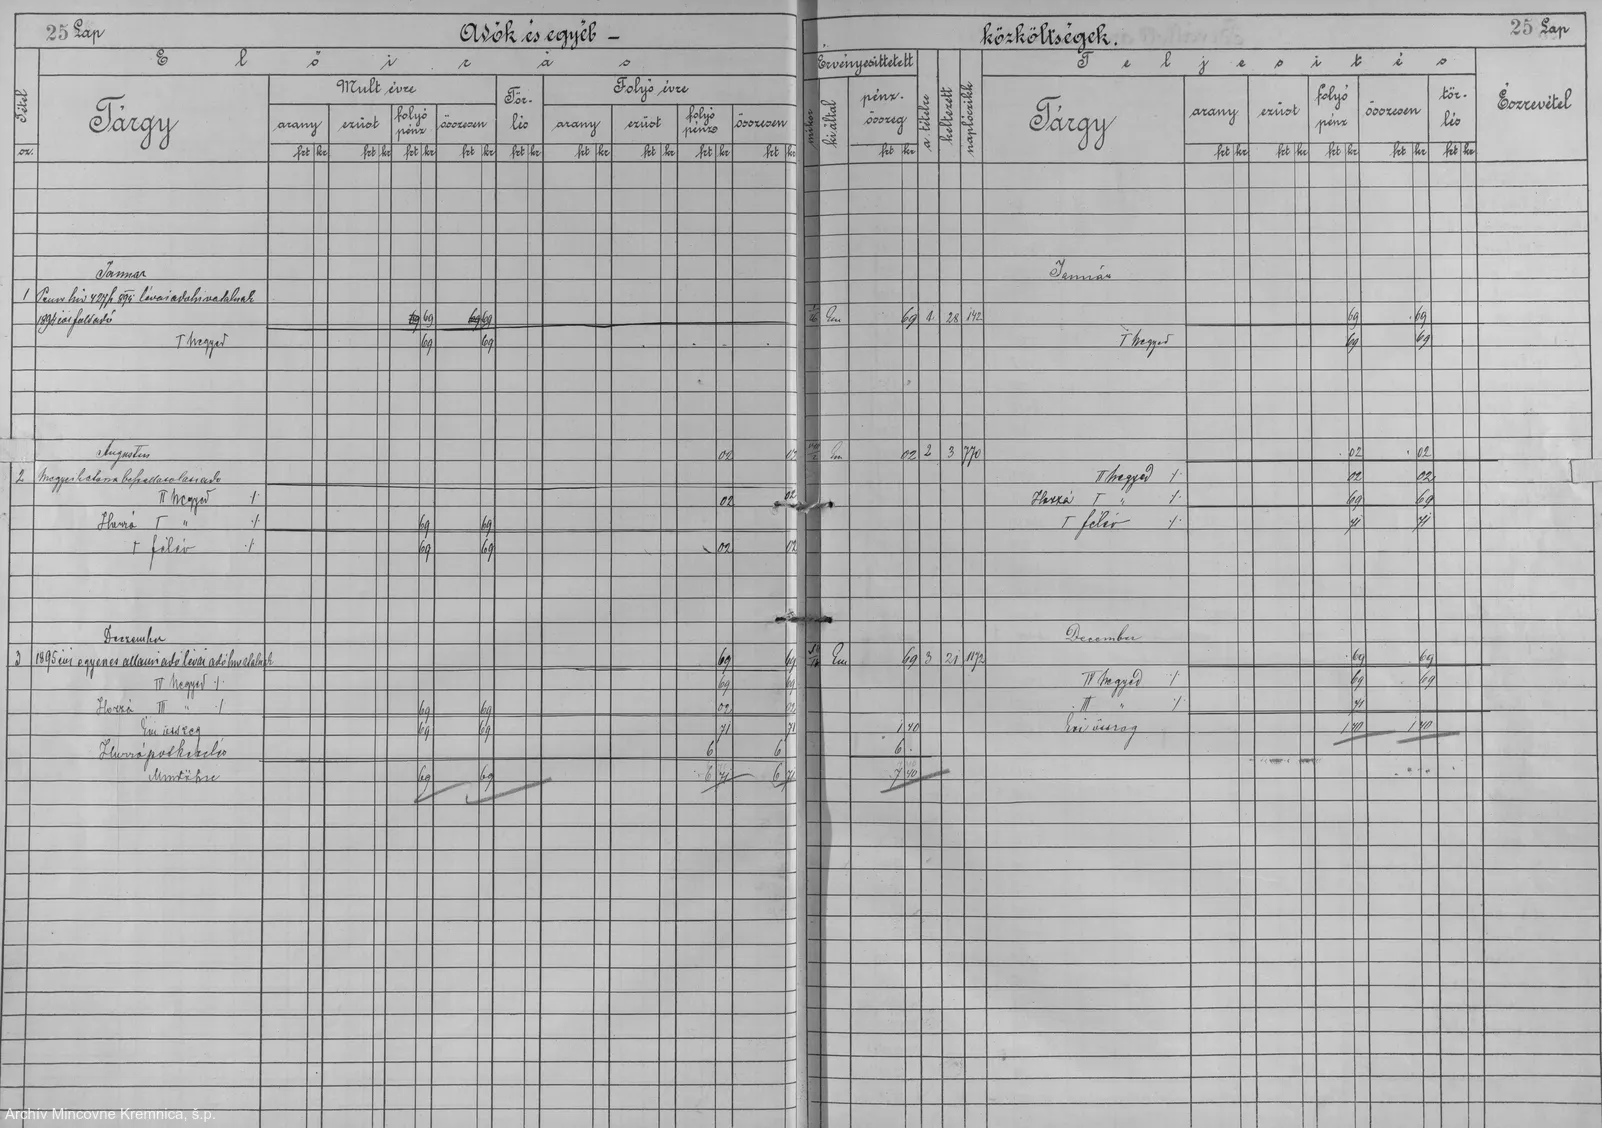 25 Lap Adók és egyéb –
Előirás
Tétel sz.
Tárgy
Mult évre
Tör-lés
Folyó évre
arany ezüst folyó pénz összesen
arany ezüst folyó pénz összesen
frt kr frt kr frt kr frt kr frt kr frt kr frt kr frt kr frt kr
Januar
1
69 69
I negyed 69 69
Augustus 02 02
2
II negyed ./. 02 02
Hozzá I " ./. 69 69
I félév ./. 69 69 02 02
Deczember
3 1895 évi egyenes állami adó lévai adóhivatalnak 69 69
IV negyed ./. 69 69
Hozzá III " ./. 69 69 02 02
Évi összeg 69 69 71 71
Hozzá 6 6
69 69 6 71 6 71
közköltségek. 25 Lap
Érvényesíttetett
mikor
ki által
pénz-összeg
a tételre
keltezett
naplóczikk
Teljesítés
Tárgy
arany ezüst folyó pénz összesen tör-lés
Észrevétel
frt kr frt kr frt kr frt kr frt kr frt kr
Január
69 1. 28 142 69 69
I negyed 69 69
02 2 3 770 02 02
II negyed ./. 02 02
Hozzá I " ./. 69 69
I félév ./. 71 71
December
69 3 21 1172 69 69
IV negyed ./. 69 69
III " ./. 71
1 40 Évi összeg 1 40 1 40
6
7 40
Archív Mincovne Kremnica, š.p.